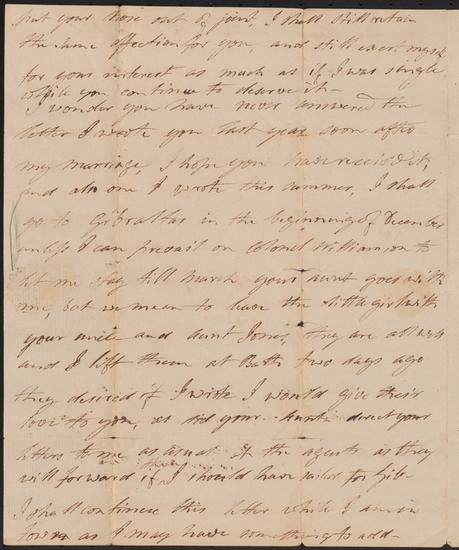 put your nose out of joint, I shall still retain
the same affection for you, and still exert myself
for your interest as much as if I was single
while you continue to deserve it—
I wonder you have never answered the
letter I wrote you last year soon after
my marriage, I hope you have received it,
and also one I wrote this summer, I shall
go to Gibraltar in the beginning of December
unless I can prevail on Colonel Williamson to
let me stay till March yours aunt goes with
me, but we mean to leave the little girl with
your uncle and aunt Jones, they are all well
and I left them at Bath two days ago
they desired if I wrote I would give their
love to you, as did your Aunt direct your
letters to me as usual at the agents as they
will forward them if I should have sailed for Gib—
I shall continue this letter while I am in
town as I may have something to add—